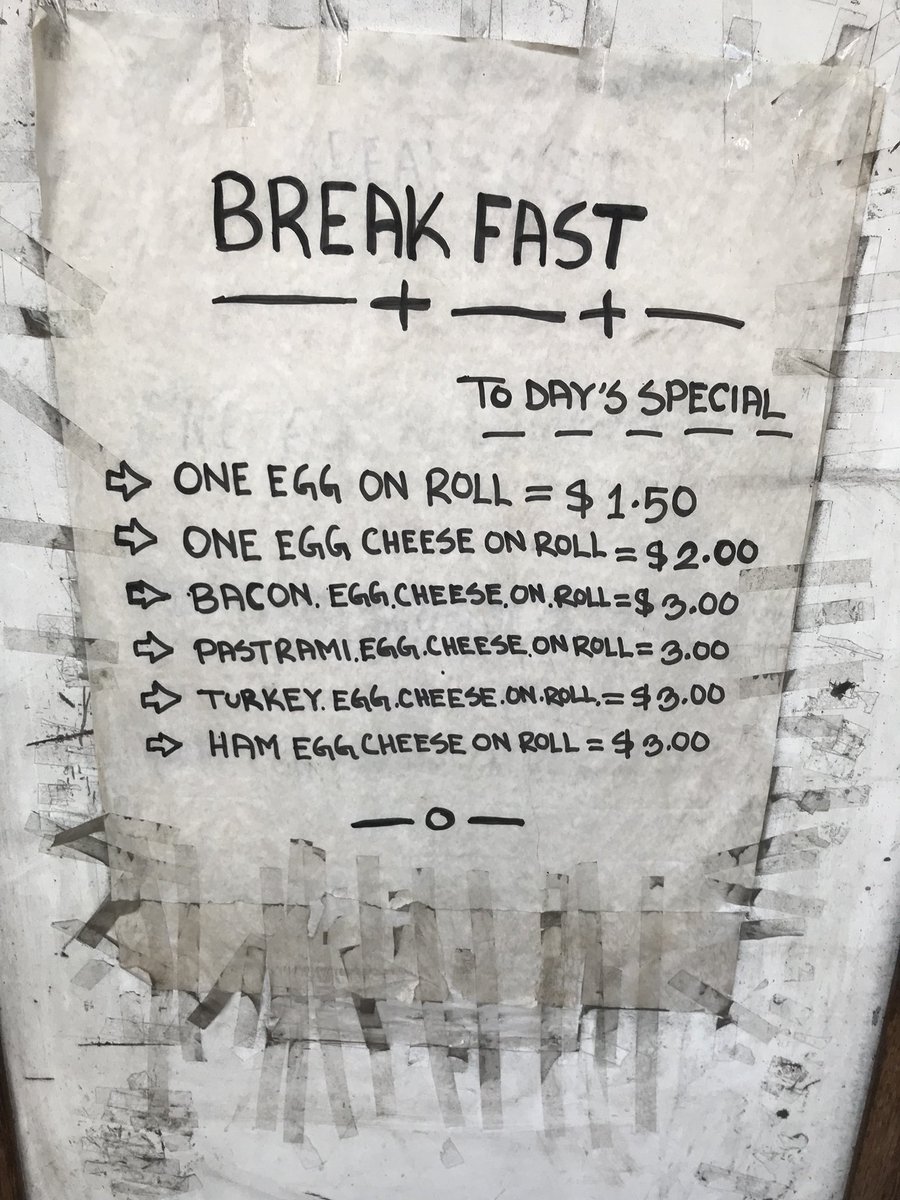 BREAK FAST
TO DAY'S SPECIAL
ONE EGG ON ROLL = $1.50
ONE EGG CHEESE ON ROLL = $2.00
BACON. EGG.CHEESE.ON.ROLL=$3.00
PASTRAMI.EGG.CHEESE.ON ROLL= 3.00
TURKEY. EGG.CHEESE.ON.ROLL.= $3.00
HAM EGG CHEESE ON ROLL = $3.00